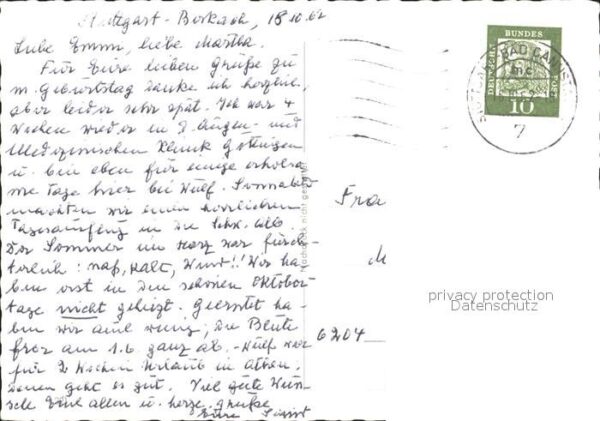 Stuttgart-Botnang, 18.10.62
Liebe Emmi, liebe Martha.
Für Eure lieben Grüße zu
m. Geburtstag danke ich herzlich,
aber leider sehr spät. Ich war 4
Wochen wieder in d. Augen- und
Medizinischen Klinik Göttingen
u. bin eben für einige erholsa
me Tage hier bei Wulf. Sonnabend
machten wir einen herrlichen
Tagesausflug in die Schw. Alb
Der Sommer im Harz war fürch-
terlich: naß, kalt, Wind!! Wir ha-
ben erst in den schönen Oktober
tage nicht geheizt. Geerntet ha-
ben wir auch wenig; die Blüte
fror am 1.6. ganz ab. - Wulf war
für 2 Wochen Urlaub in Athen.
Denen geht es gut. Viel gute Wün-
sche Euch allen u. herzl. Grüße
Eure
Nachdruck nicht gestattet
DEUTSCHE
BUNDES
POST
10
BAD CANNST
mc
7
Fra
M
6204
privacy protection
Datenschutz